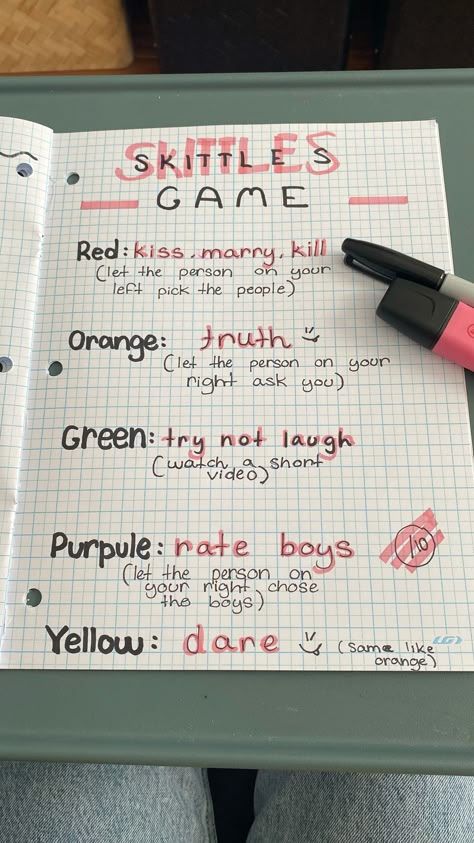 SKITTLES
GAME
Red: kiss, marry, kill
(let the person on your
left pick the people)
Orange: truth
(let the person on your
right ask you)
Green: try not laugh
(watch a short
video)
Purpule: rate boys
/10
(let the person on
your right chose
the boys)
Yellow: dare
(same like
orange)